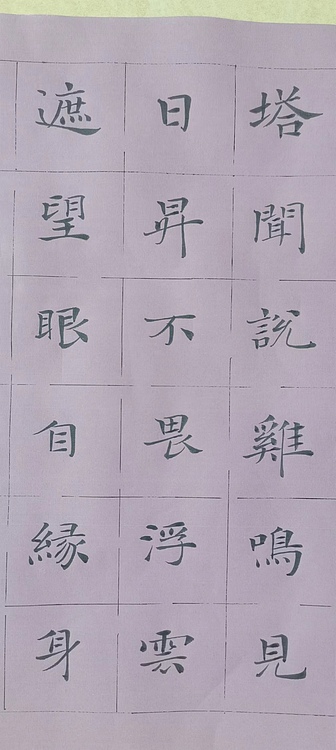 塔聞説雞鳴見
日昇不畏浮雲
遮望眼自緣身